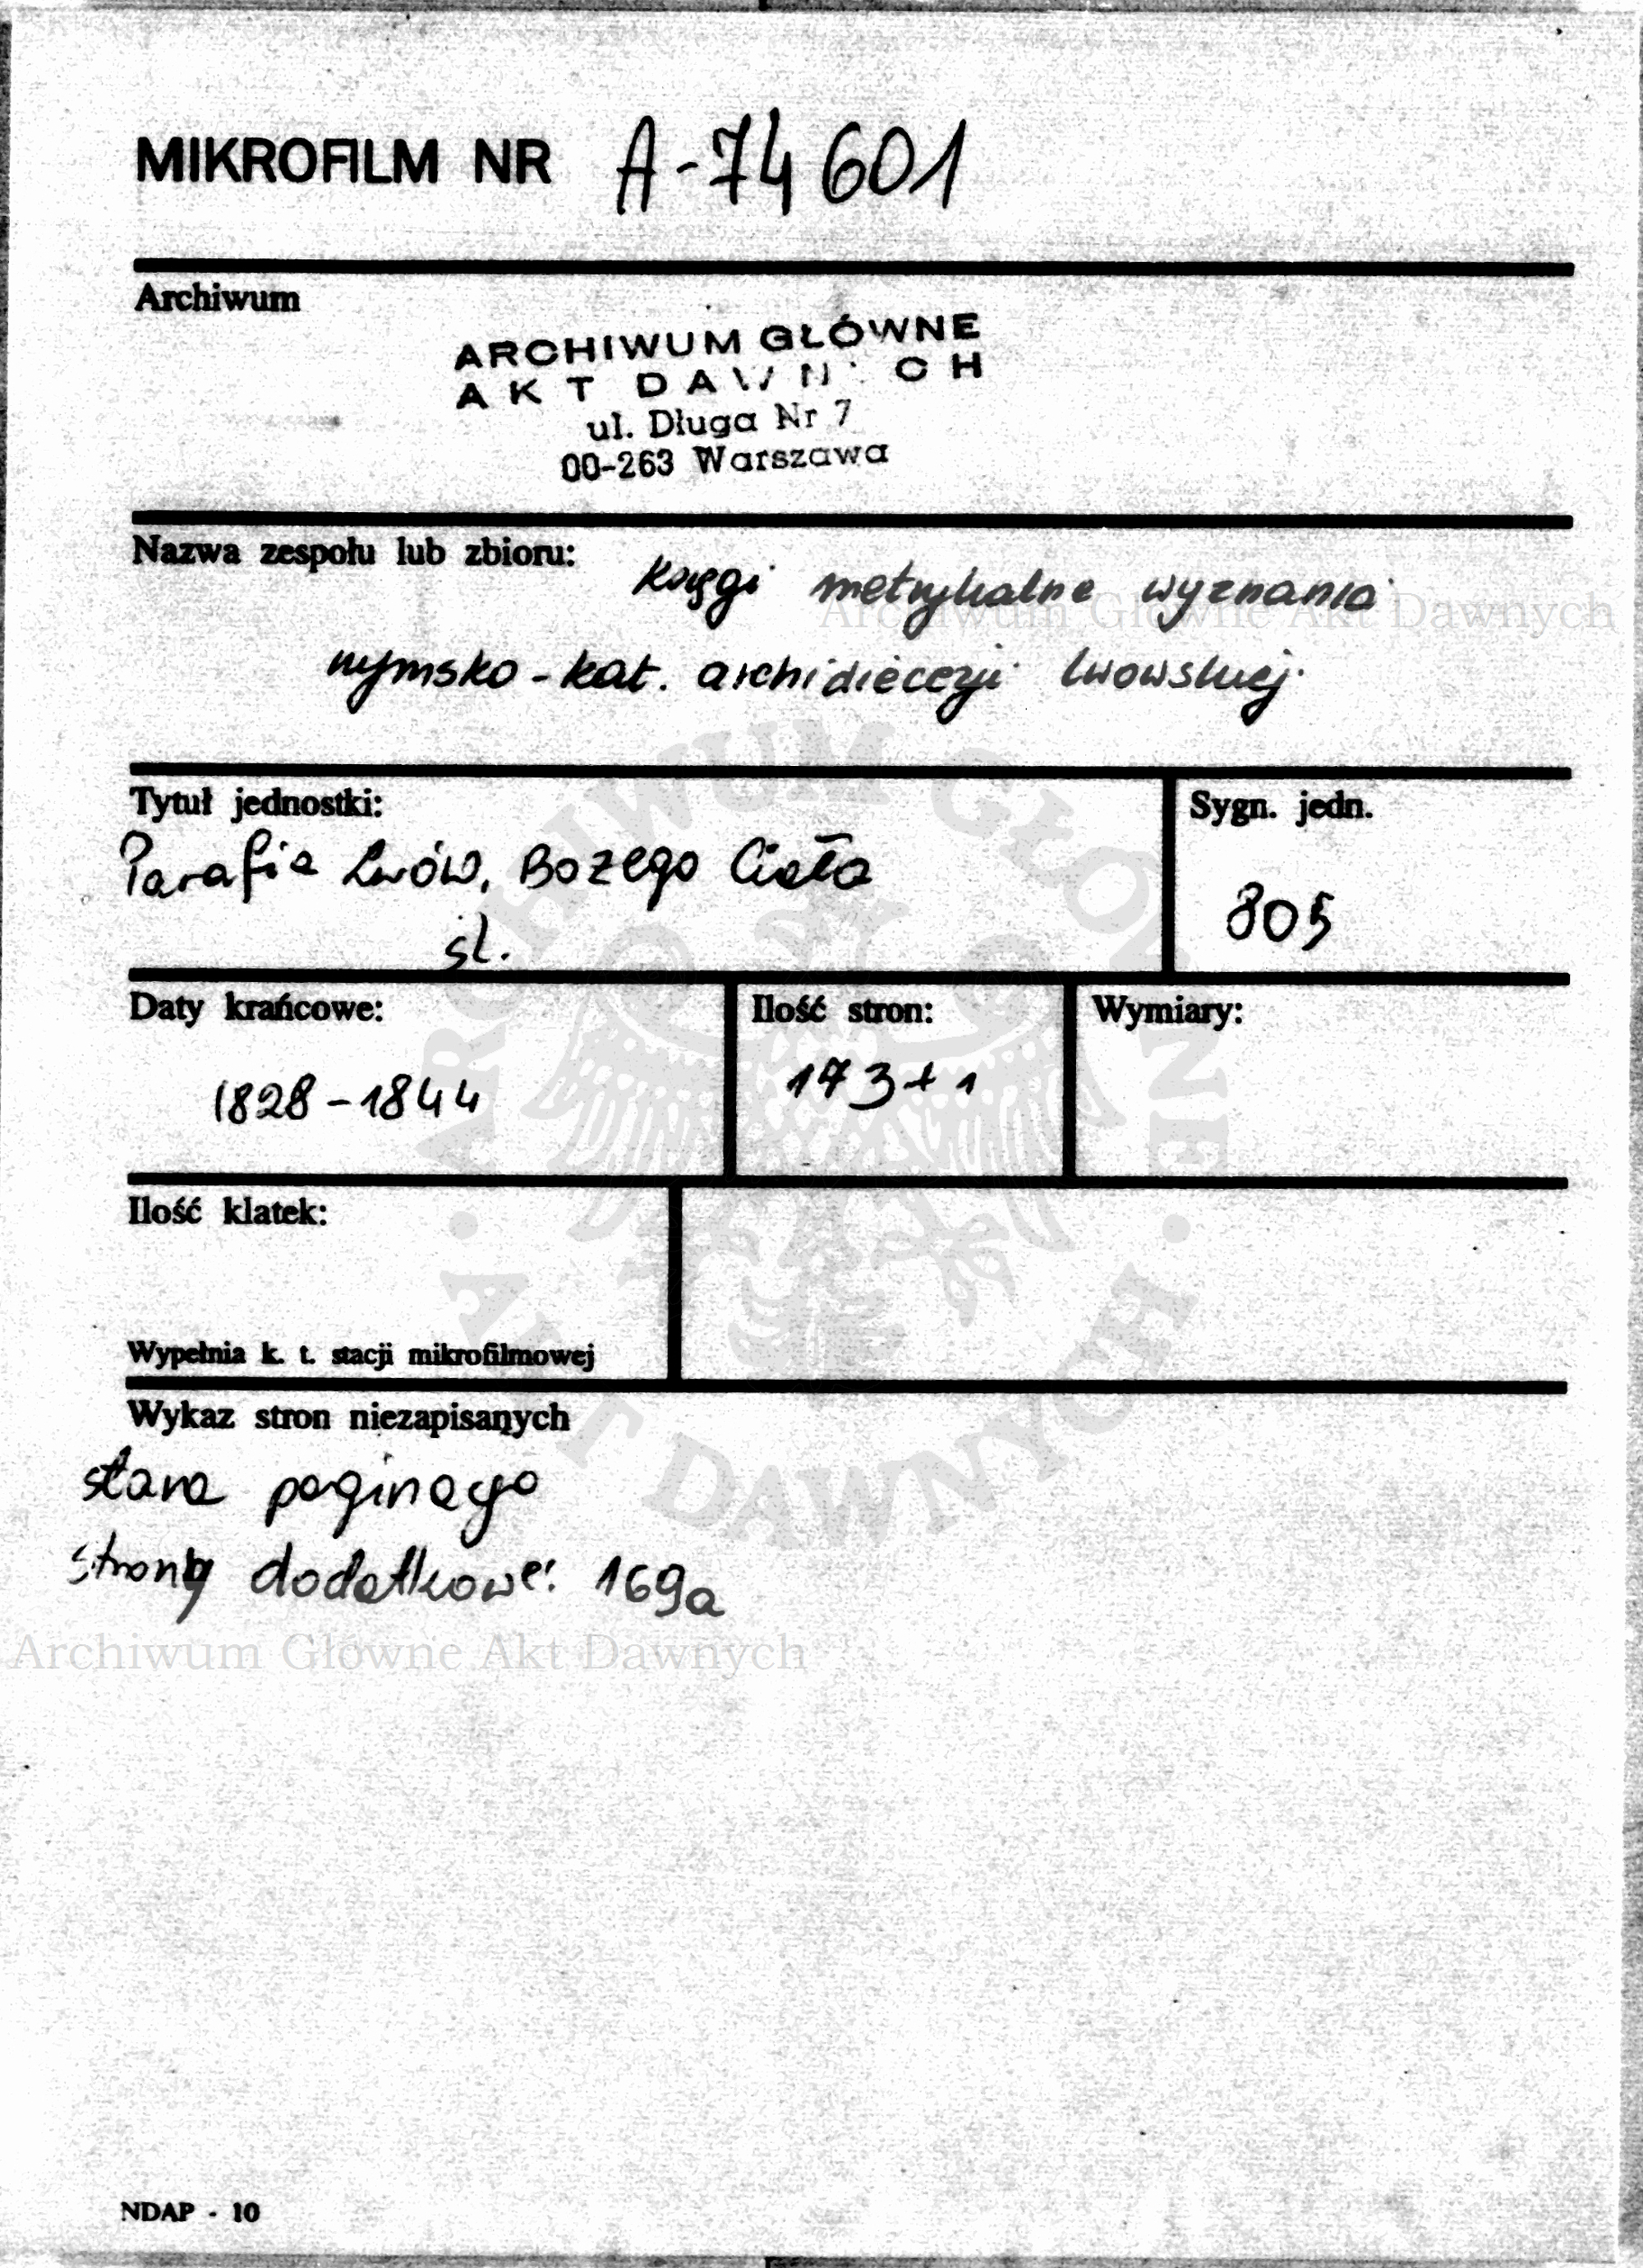 MIKROFILM NR A-74601
Archiwum
ARCHIWUM GŁÓWNE
AKT DAWNYCH
ul. Długa Nr 7
00-263 Warszawa
Nazwa zespołu lub zbioru: Księgi metrykalne wyznania
rzymsko-kat. archidiecezji lwowskiej
Archiwum Główne Akt Dawnych
Tytuł jednostki:
Parafia Lwów, Bożego Ciała
śl.
Sygn. jedn.
805
Daty krańcowe:
1828-1844
Ilość stron:
173+1
Wymiary:
Ilość klatek:
Wypełnia k. t. stacji mikrofilmowej
Wykaz stron niezapisanych
stara paginacja
strony dodatkowe: 169a
Archiwum Główne Akt Dawnych
ARCHIWUM GŁÓWNE · AKT DAWNYCH ·
NDAP - 10